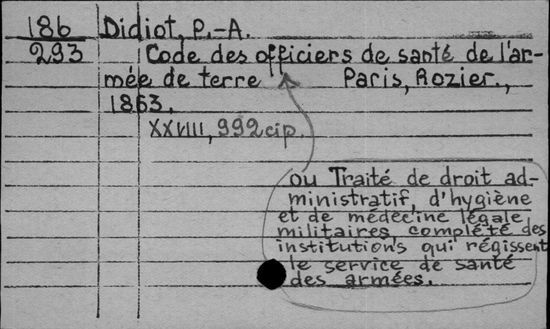 186 Didiot, P.-A.
293 Code des officiers de santé de l'ar-
mée de terre Paris, Rozier.,
1863.
XXVIII, 992 cip.
ou Traité de droit ad-
ministratif, d'hygiène
et de médecine légale
militaires, complété des
institutions qui régissent
le service de santé
des armées.